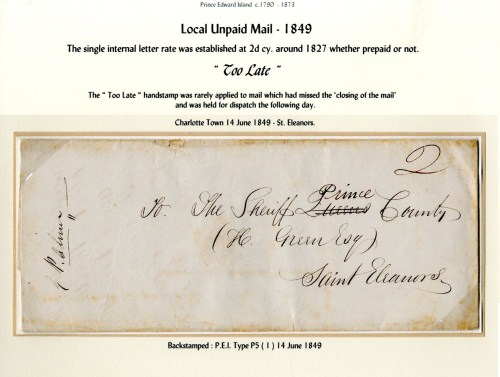 Prince Edward Island c.1790 - 1873
Local Unpaid Mail - 1849
The single internal letter rate was established at 2d cy. around 1827 whether prepaid or not.
" Too Late "
The " Too Late " handstamp was rarely applied to mail which had missed the 'closing of the mail'
and was held for dispatch the following day.
Charlotte Town 14 June 1849 - St. Eleanors.
2
Prince
To. The Sheriff Queens County
(H. Green Esq)
Saint Eleanors
Backstamped : P.E.I. Type P5 ( 1 ) 14 June 1849